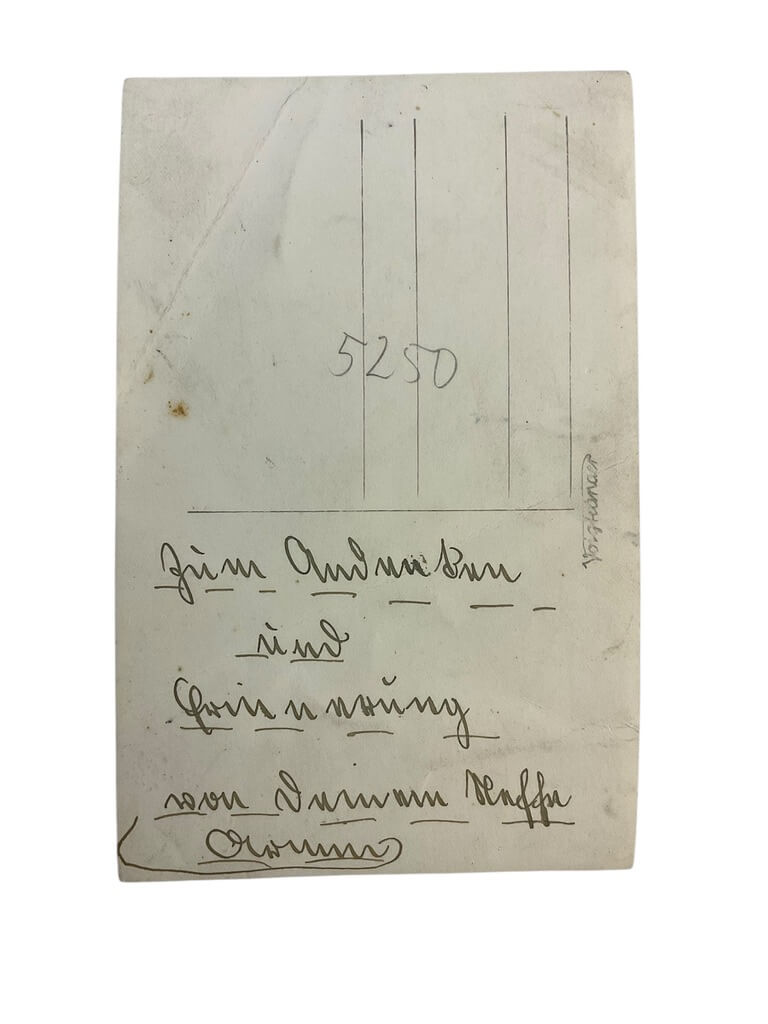 5250
Voigtländer
Zum Andenken
und
Erinnerung
von Deinem Neffe
Armin